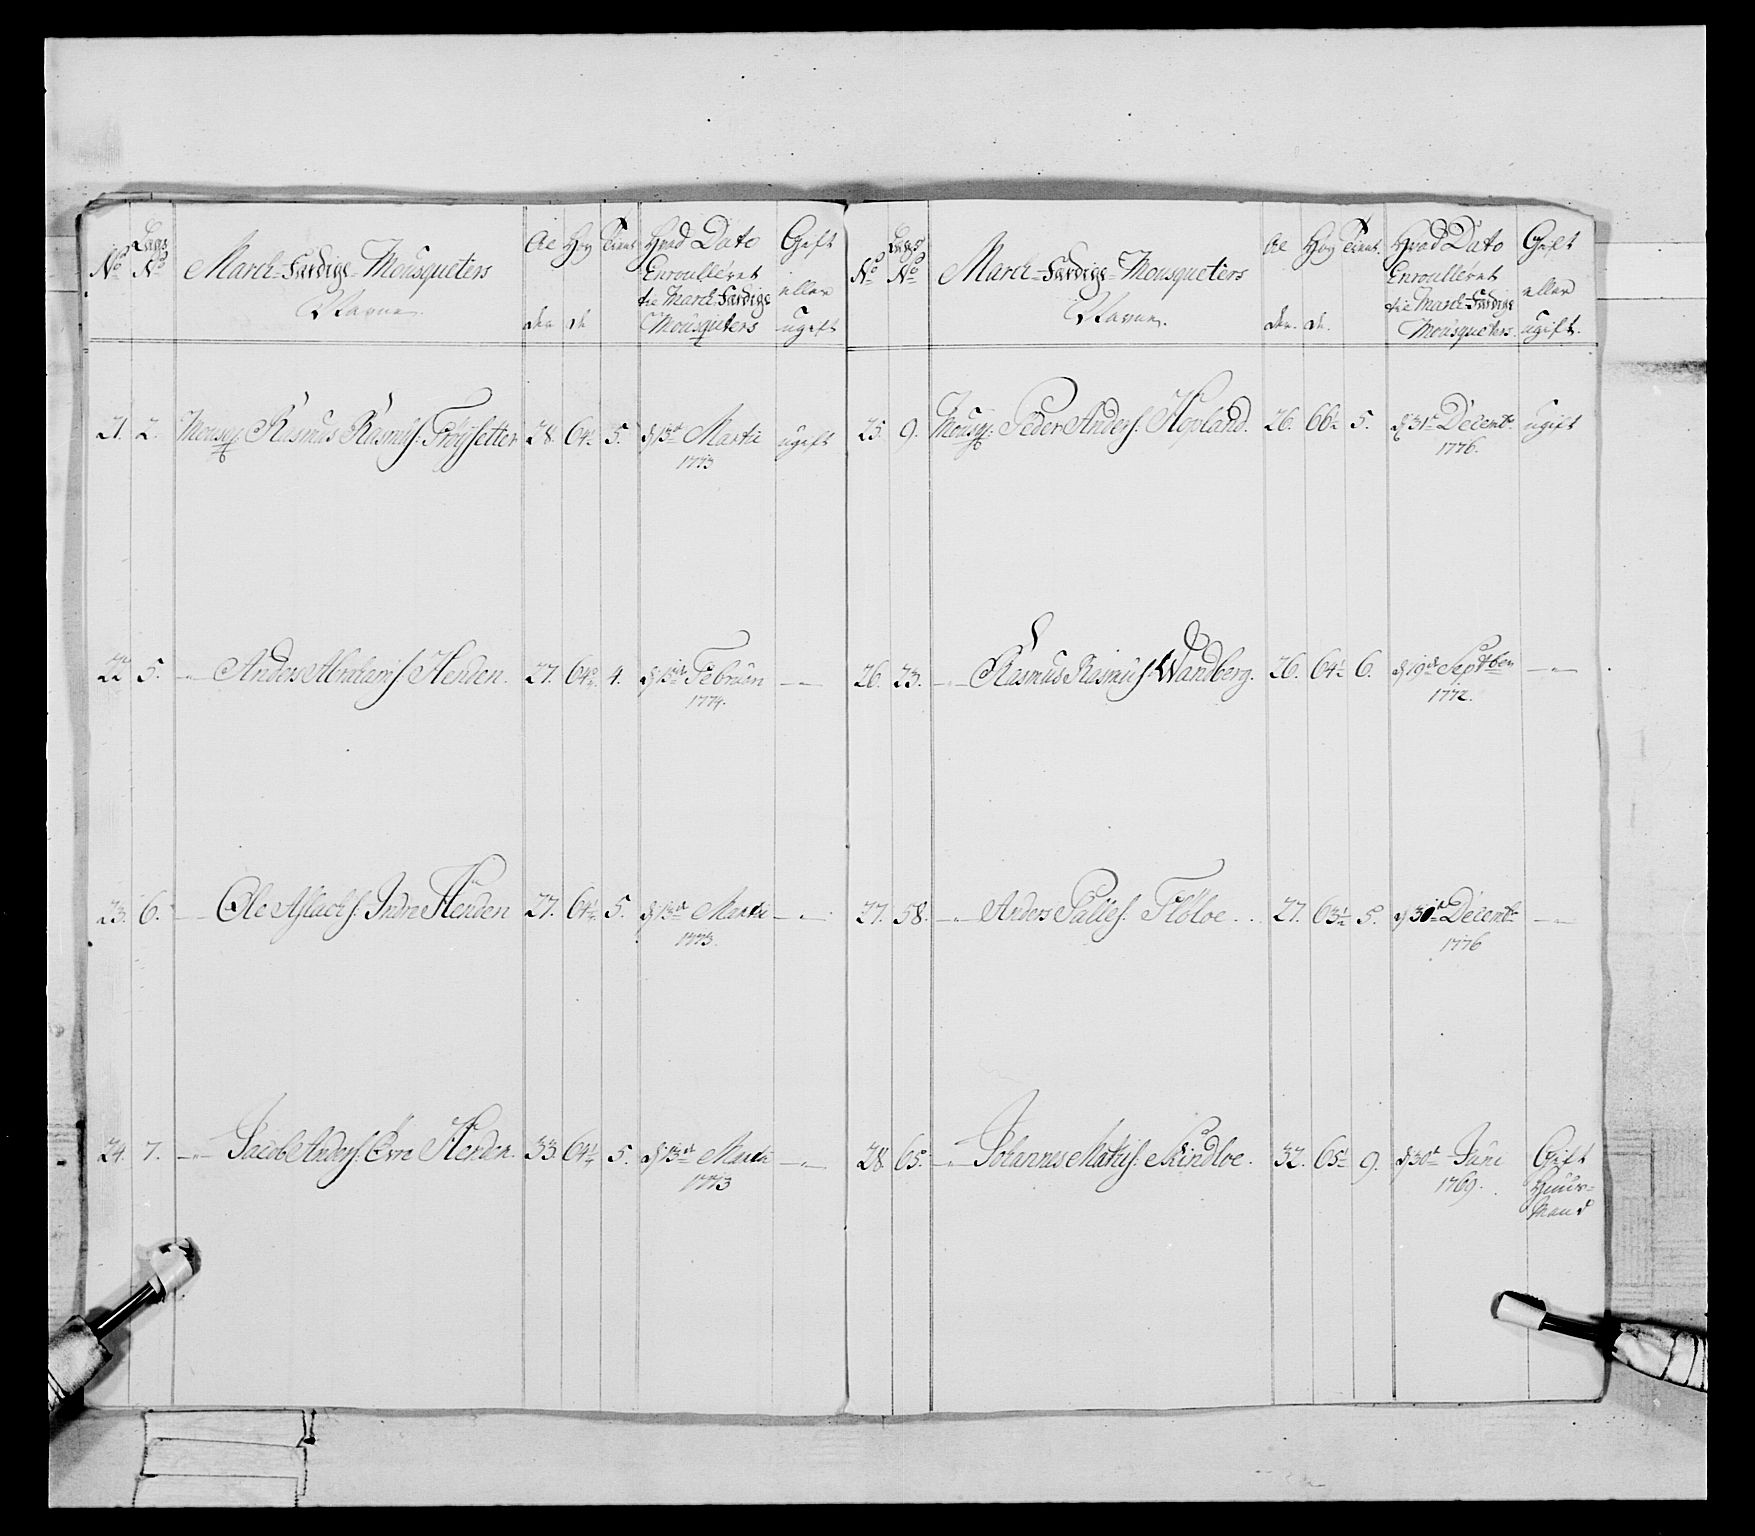 No Lægs No March-Færdige-Mousqueters Navne. Alder Høyde Tient. Hvad Dato Enroulleret til March-Færdige Mousqueters Gift eller ugift
21. 2. Mousq: Rasmus Rasmus: Frøysetter 28. 64½ 5. d 13de Martii 1773 ugift
22 5. -"- Anders Abrahams: Henden. 27. 64½ 4. d 15de Februari 1774. -"-
23. 6. -"- Ole Aslachs: Indre Henden 27. 64½ 5. d 13de Martii 1773. -"-
24. 7. -"- Jacob Anders: Øvre Henden. 33. 64½ 5. d 13de Martii 1773 -"-
No Lægs No March-Færdige-Mousqueters Navne. Alder. Høyde. Tient. Hvad Dato Enroulleret til March-Færdige Mousqueters. Gift eller ugift.
25. 9. Mousq: Peder Anders: Hovland. 26. 66½ 5. d 31te Decemb: 1776. ugift
26. 23. -"- Rasmus Rasmus: Wandberg. 26. 64½ 6. d 19de Septben 1772. -"-
27. 58. -"- Anders Palies: Fløloe. 27. 63½ 5. d 30te Decemb: 1776 -"-
28. 65. -"- Johannes Matis: Kindloe. 32. 65½ 9. d 30te Juni 1769. Gift Huus-Mand